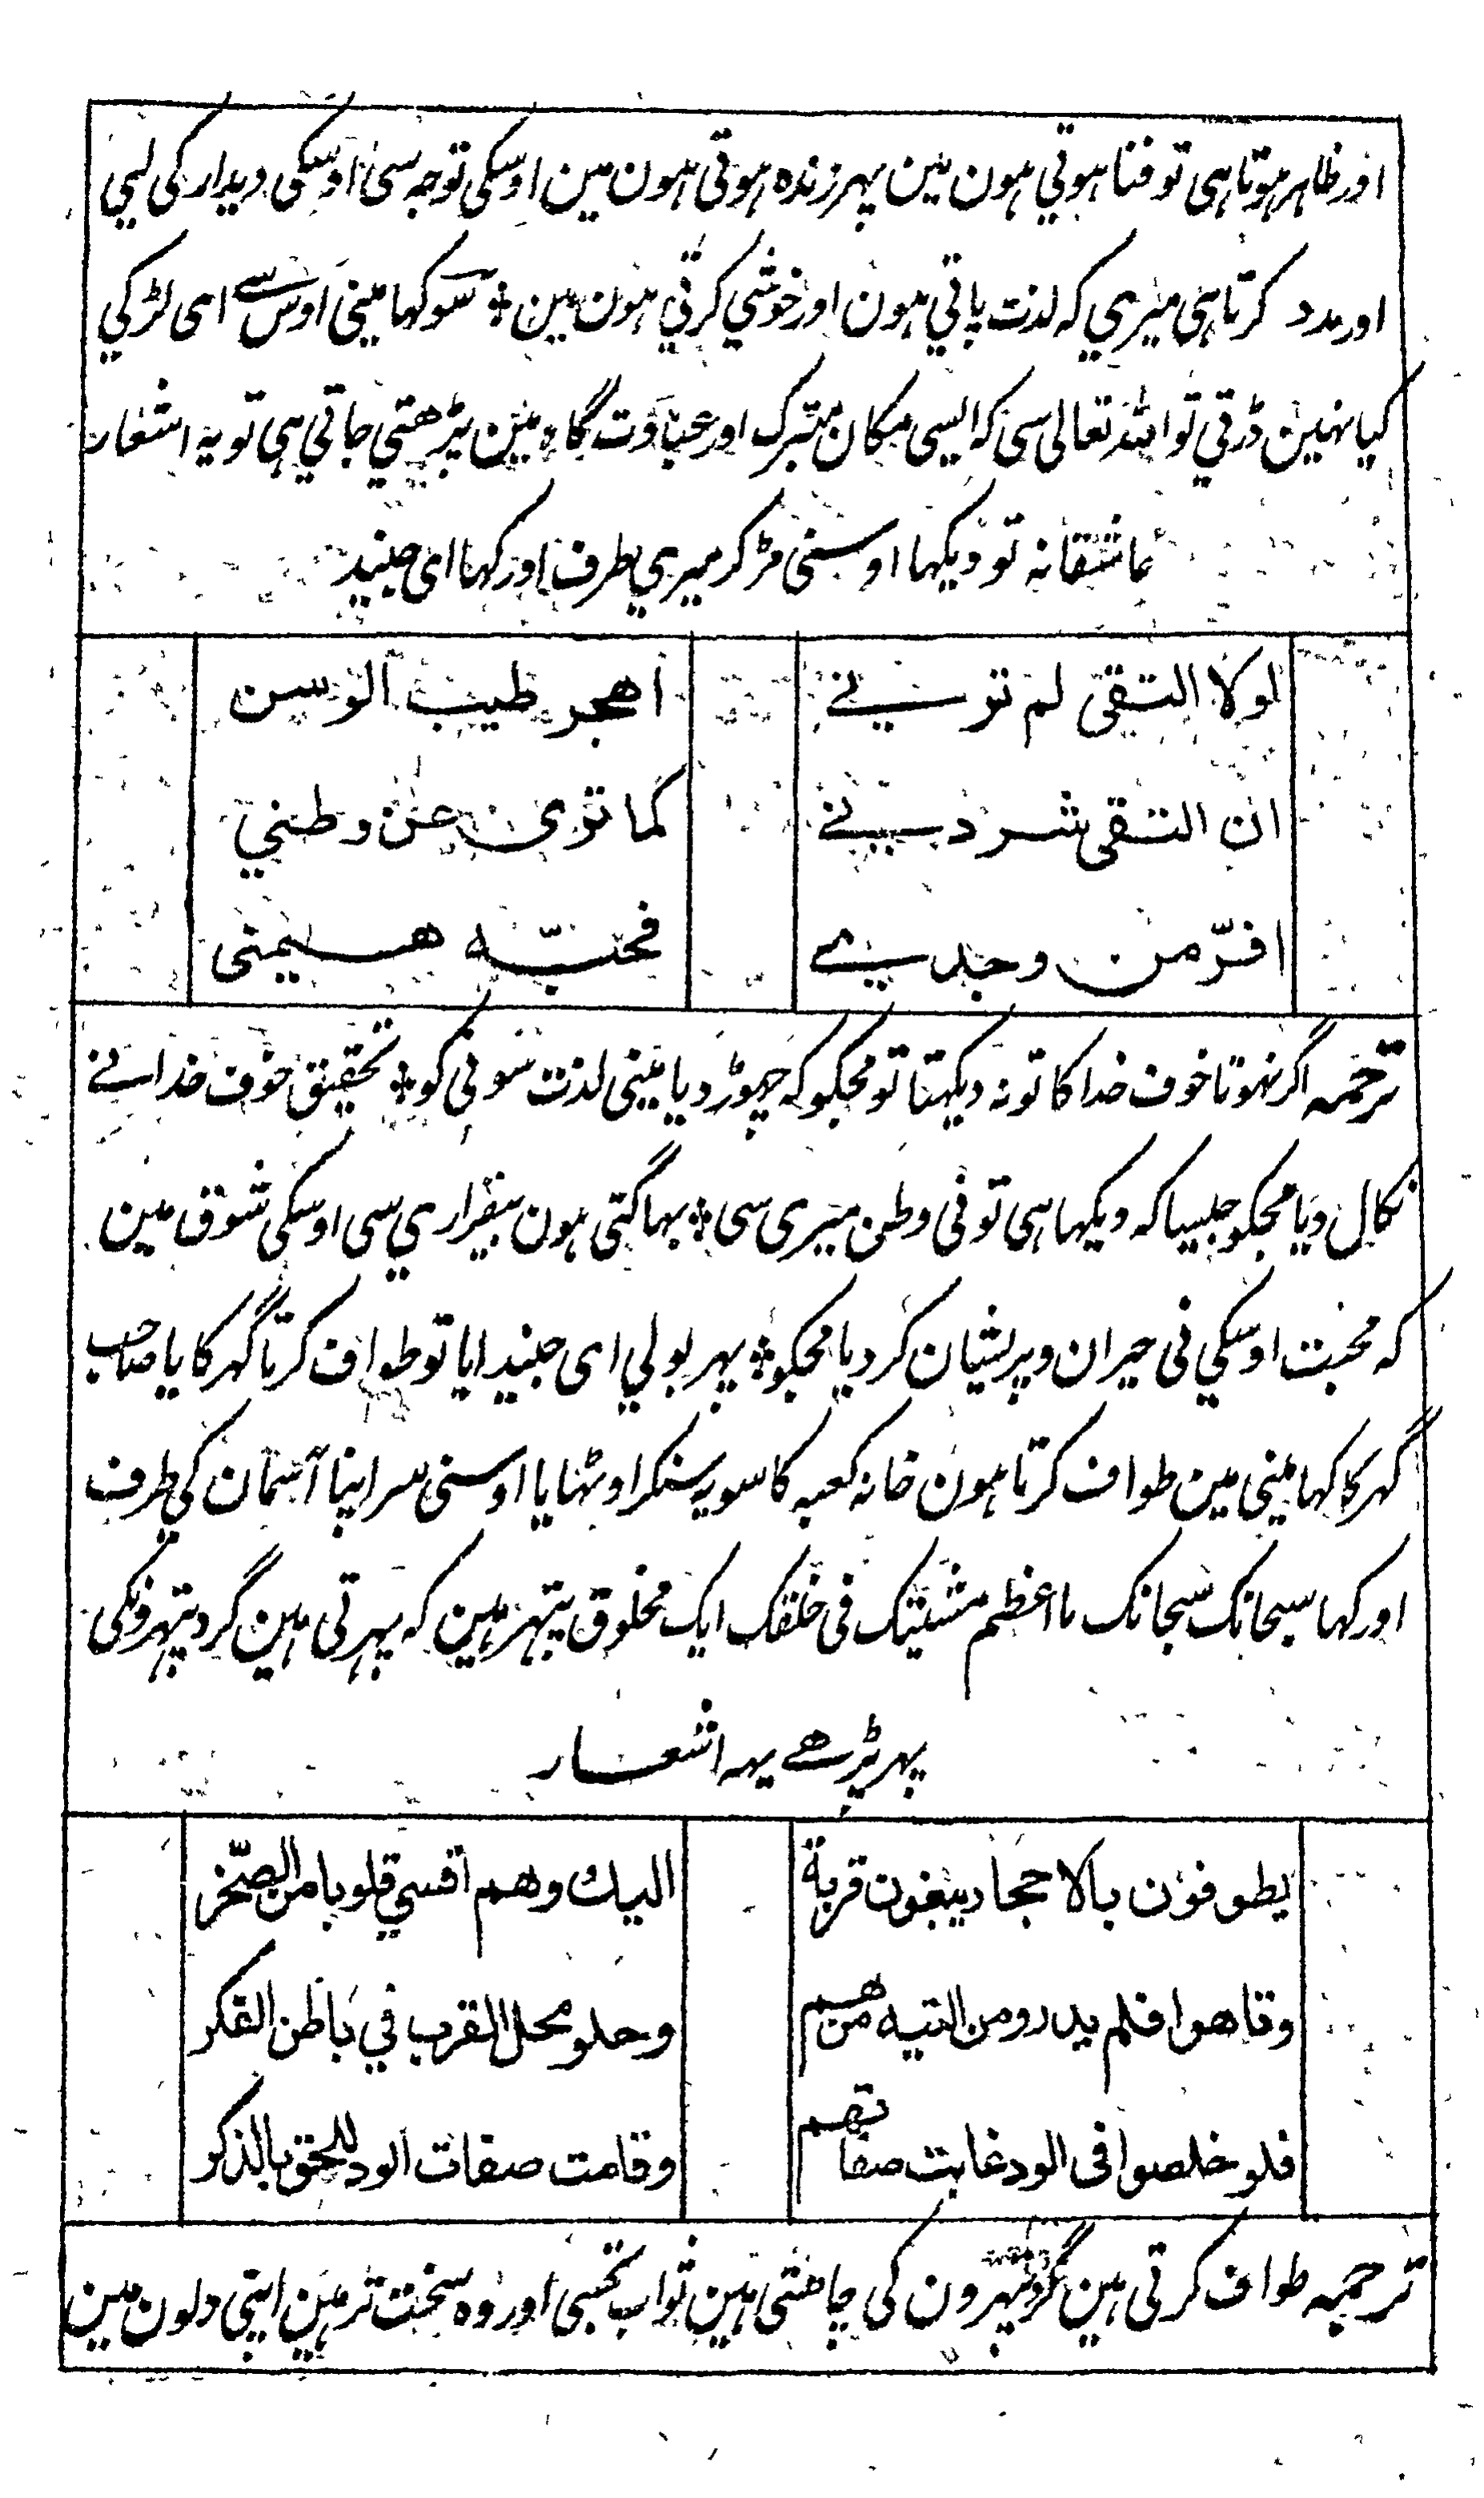 اور ظاہر ہوتا ہی تو فنا ہوتی ہون مین پہر زندہ ہوتی ہون مین اوسکی توجہ سی اوسکی دیدار کی لیی
اور مدد کرتا ہی میری کہ لذت پاتی ہون اور خوشی کرتی ہون مین ؞ سو کہا مینی اوس سے ای لڑکی
کیا نہین ڈرتی تو اللہ تعالی سی کہ ایسی مکان متبرک اور عبادت گاہ مین پڑھتی جاتی ہی تو یہ اشعار
عاشقانہ تو دیکہا اوسنی مڑ کر میری طرف اور کہا ای جنید
لولا التقی لم ترنے اھجر طیب الوسن
ان التقی شردنے کما تری عن وطنی
افرّ من وجدی بے فحبّہ ھیمنی
ترجمہ اگر نہوتا خوف خدا کا تو نہ دیکہتا تو مجکو کہ چہوڑ دیا مینی لذت سونی کو ؞ تحقیق خوف خدا نے
نکال دیا مجکو جیسا کہ دیکہا ہی تو نی وطن میری سی ؞ بہاگتی ہون بیقراری سی اوسکی شوق مین
کہ محبت اوسکی نی حیران و پریشان کر دیا مجکو ؞ پہر بولی ای جنید ایا تو طواف کرتا گہر کا یا صاحب
گہر کا کہا مینی مین طواف کرتا ہون خانہ کعبہ کا سو یہ سنکر اوٹہایا اوسنی سر اپنا آسمان کی طرف
اور کہا سبحانک سبحانک ما اعظم مشیتک فی خلقک ایک مخلوق پتہر ہین کہ پہرتی ہین گرد پتہرونکی
پہر پڑھے یہہ اشعار
یطوفون بالاحجار یبغون قربة الیك وھم اقسی قلوبا من الصّخر
وتاھوا فلم یدروا من التیہ من ھم وحلو محل القرب فی باطن الفکر
فلو خلصوا فی الود غابت صفاتھم وقامت صفات الود للحق بالذکر
ترجمہ طواف کرتی ہین گرد پتہرون کی چاہتی ہین ثواب تجسی اور وہ سخت تر ہین اپنی دلون مین